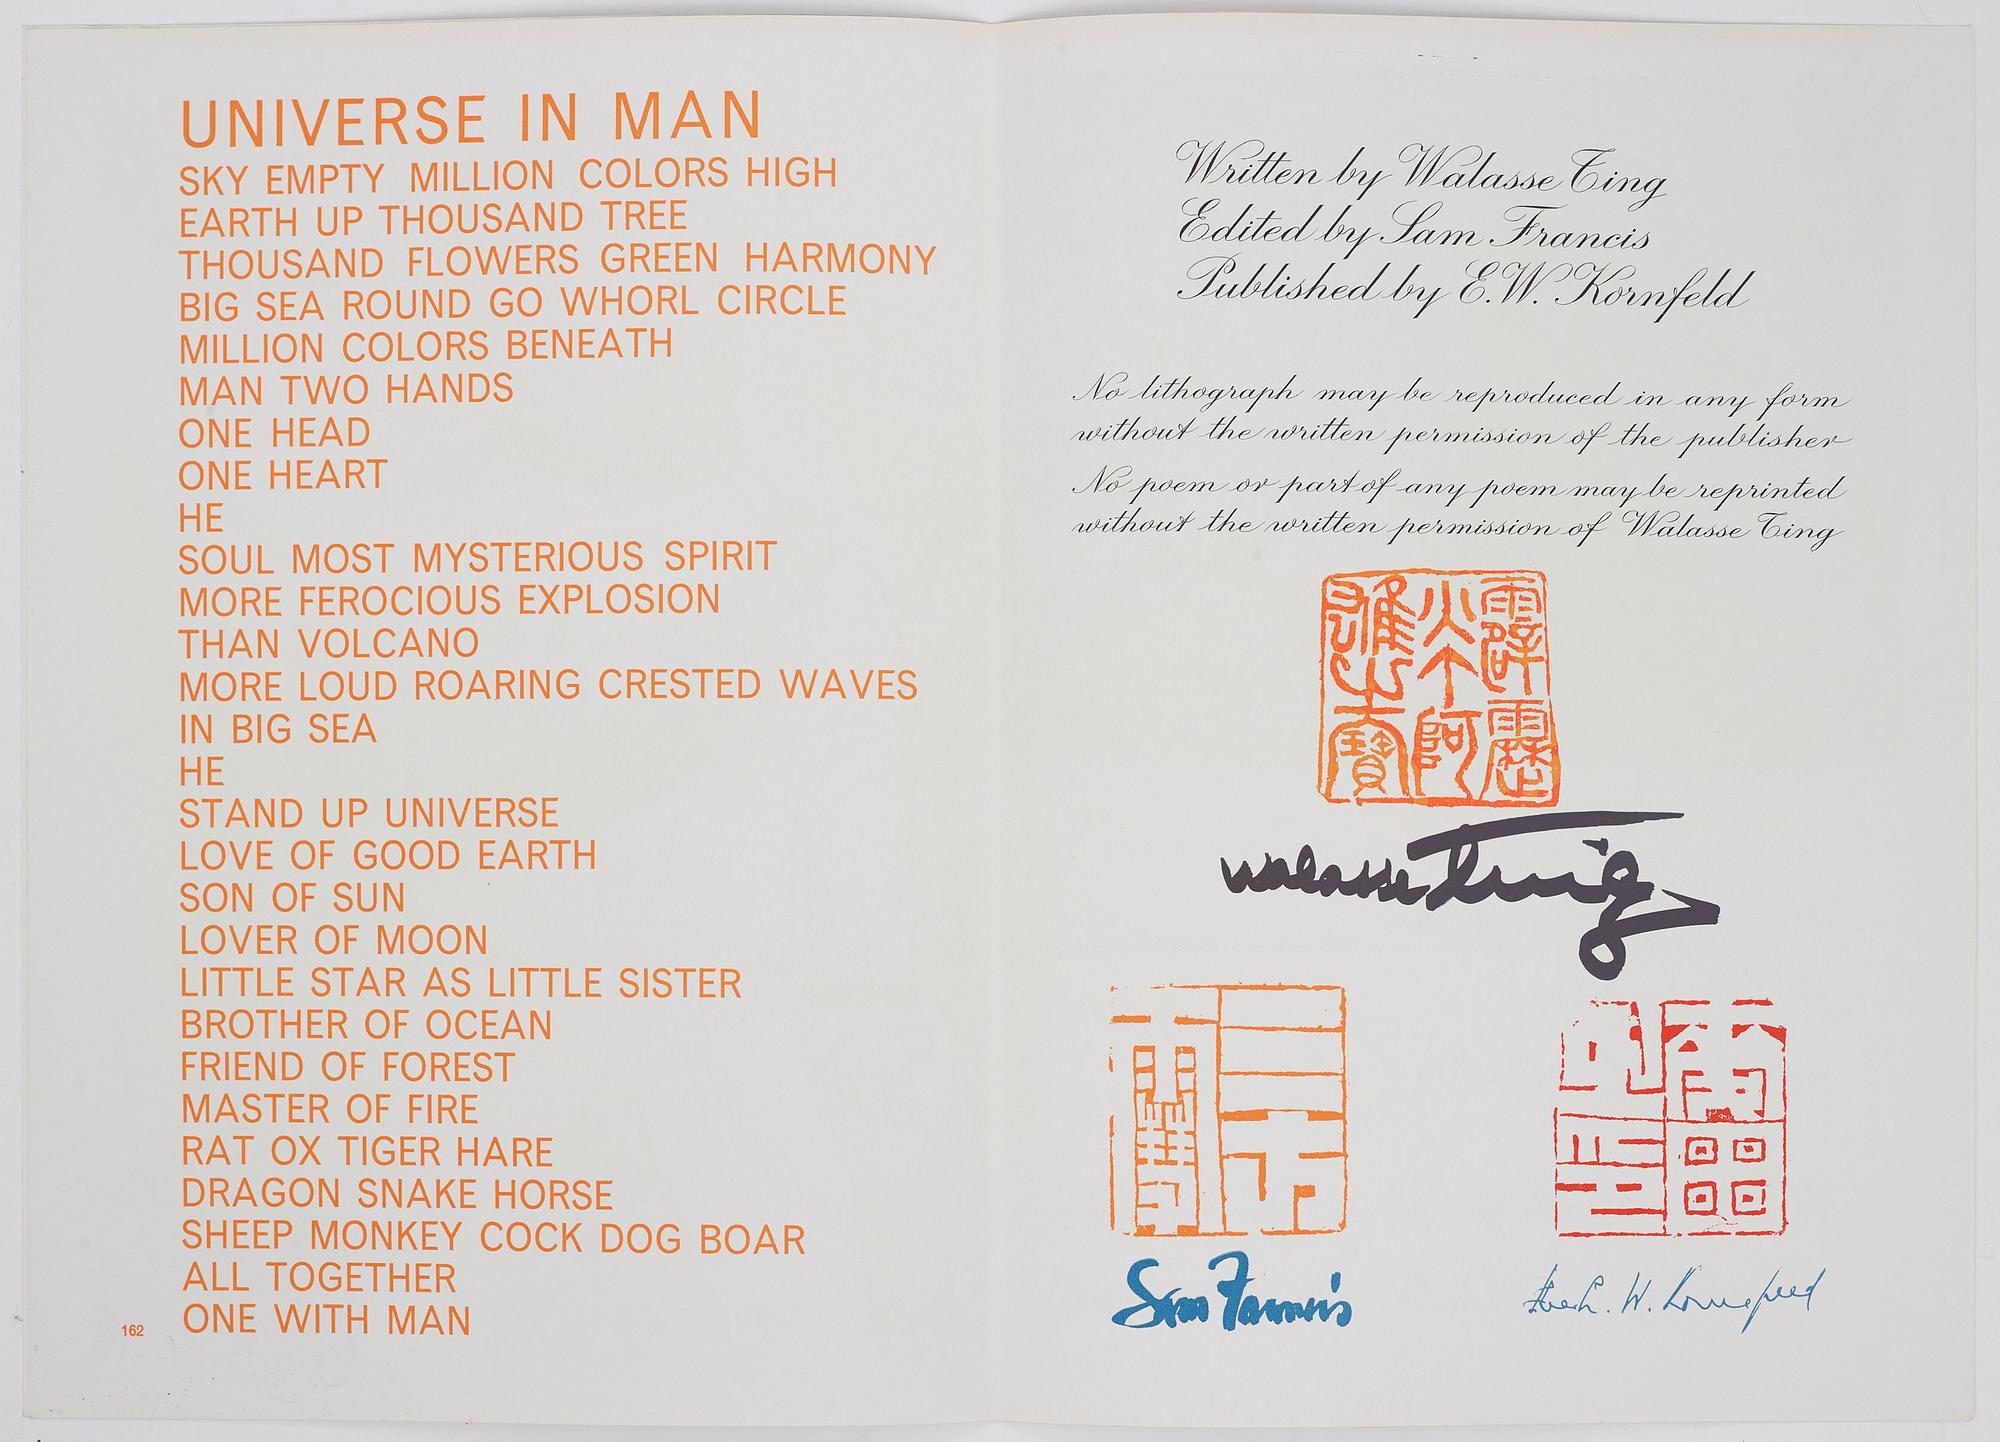 UNIVERSE IN MAN
SKY EMPTY MILLION COLORS HIGH
EARTH UP THOUSAND TREE
THOUSAND FLOWERS GREEN HARMONY
BIG SEA ROUND GO WHORL CIRCLE
MILLION COLORS BENEATH
MAN TWO HANDS
ONE HEAD
ONE HEART
HE
SOUL MOST MYSTERIOUS SPIRIT
MORE FEROCIOUS EXPLOSION
THAN VOLCANO
MORE LOUD ROARING CRESTED WAVES
IN BIG SEA
HE
STAND UP UNIVERSE
LOVE OF GOOD EARTH
SON OF SUN
LOVER OF MOON
LITTLE STAR AS LITTLE SISTER
BROTHER OF OCEAN
FRIEND OF FOREST
MASTER OF FIRE
RAT OX TIGER HARE
DRAGON SNAKE HORSE
SHEEP MONKEY COCK DOG BOAR
ALL TOGETHER
ONE WITH MAN
162
Written by Walasse Ting
Edited by Sam Francis
Published by E.W. Kornfeld
No lithograph may be reproduced in any form
without the written permission of the publisher
No poem or part of any poem may be reprinted
without the written permission of Walasse Ting
walasse Ting
Sam Francis